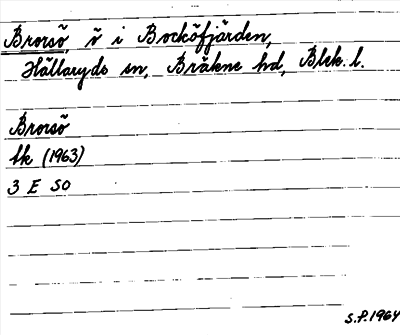 Brorsö ö i Bocköfjärden,
Hällaryds sn, Bräkne hd, Blek. l.
Brorsö
tk (1963)
3 E SO
S.P. 1964